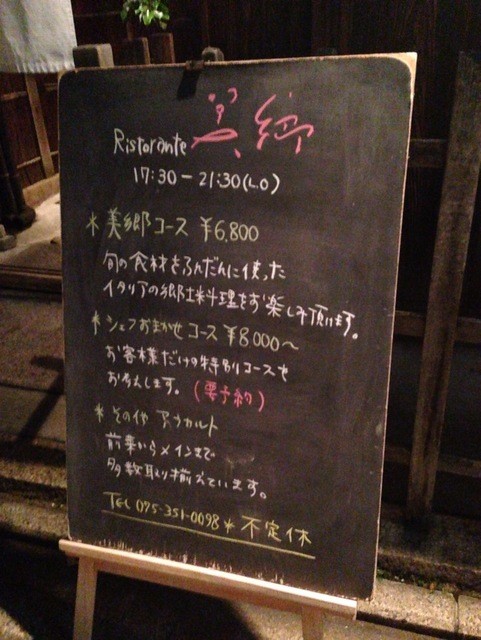 Ristorante 美郷
17:30-21:30(L.O)
*美郷コース ¥6,800
旬の食材をふんだんに使った
イタリアの郷土料理をお楽しみ頂けます。
*シェフおまかせコース ¥8000〜
お客様だけの特別コースを
お考えします。(要予約)
*その他 アラカルト
前菜からメインまで
多数取り揃えています。
TEL 075-351-0098 * 不定休